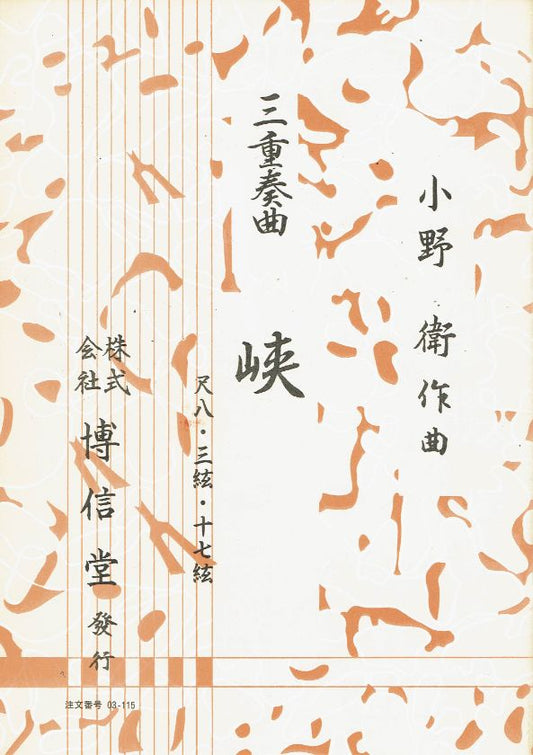 小野 衛 作曲
三重奏曲
峡
尺八・三絃・十七絃
株式会社 博信堂 發行
注文番号 03-115